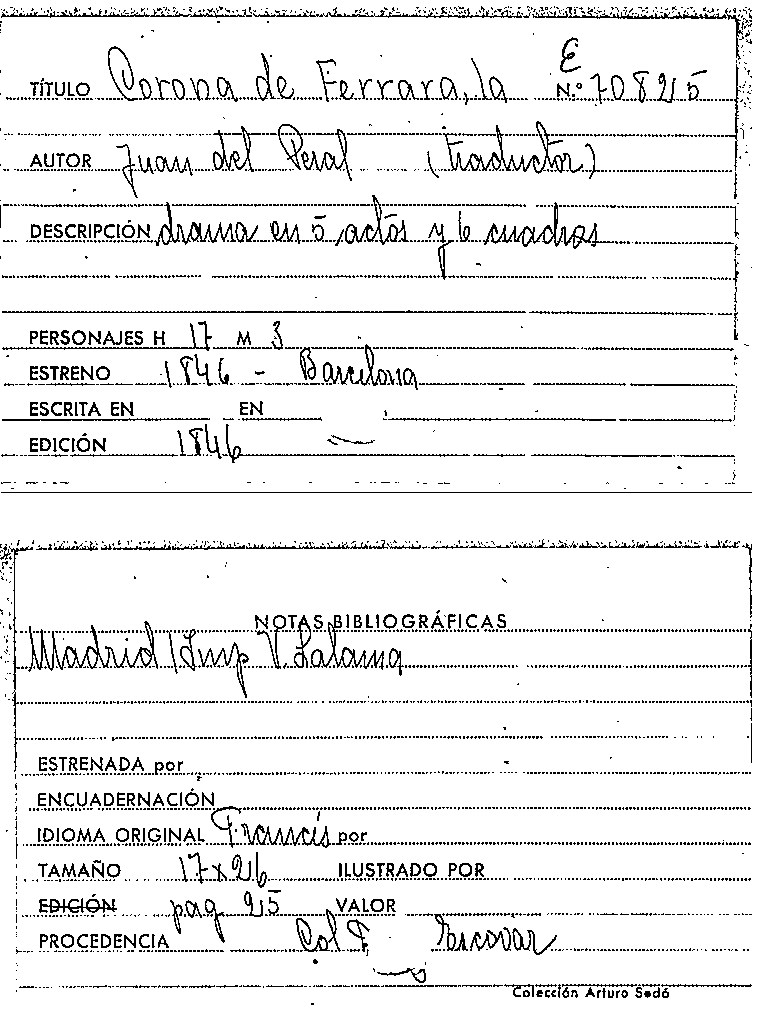 E
TÍTULO Corona de Ferrara, la N.º 70825
AUTOR Juan del Peral (traductor)
DESCRIPCIÓN drama en 5 actos y 6 cuadros
PERSONAJES H 17 M 3
ESTRENO 1846 - Barcelona
ESCRITA EN EN
EDICIÓN 1846
NOTAS BIBLIOGRÁFICAS
Madrid / Imp V. Lalama
ESTRENADA por
ENCUADERNACIÓN
IDIOMA ORIGINAL Francés por
TAMAÑO 17x26 ILUSTRADO POR
EDICIÓN pag 25 VALOR
PROCEDENCIA Col F. Escovar
Colección Arturo Sedó